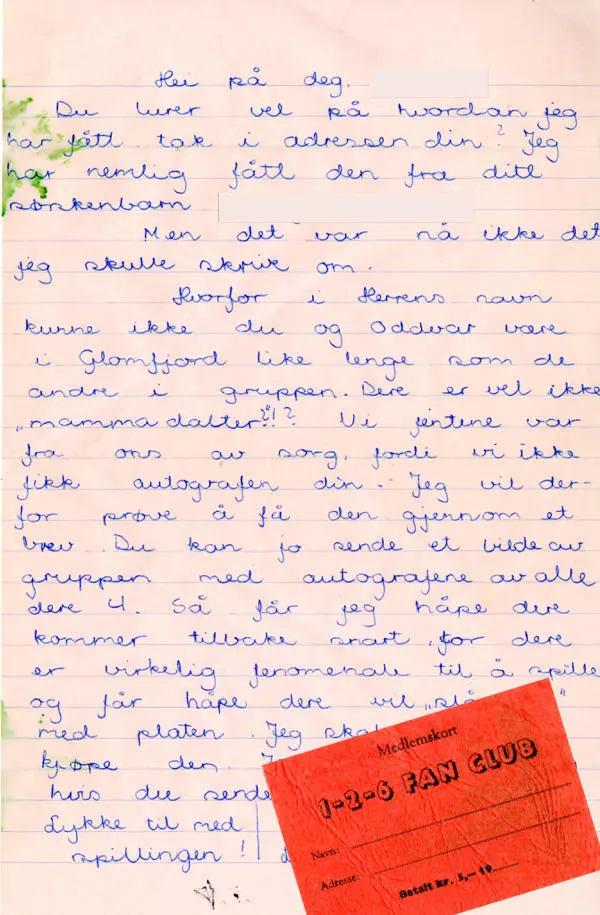 Hei på deg.
Du lurer vel på hvordan jeg
har fått tak i adressen din? Jeg
har nemlig fått den fra ditt
søskenbarn
Men det var nå ikke det
jeg skulle skrive om.
Hvorfor i Herrens navn
kunne ikke du og Oddvar være
i Glomfjord like lenge som de
andre i gruppen. Dere er vel ikke
"mammadalter"?!? Vi jentene var
fra oss av sorg, fordi vi ikke
fikk autografen din. Jeg vil der-
for prøve å få den gjennom et
brev. Du kan jo sende et bilde av
gruppen med autografene av alle
dere 4. Så får jeg håpe dere
kommer tilbake snart, for dere
er virkelig fenomenale til å spille
og får håpe dere vil "slå
med platen. Jeg skal
kjøpe den.
hvis du sende
Lykke til med
spillingen!
Medlemskort
1-2-6 FAN CLUB
Navn:
Adresse:
Betalt kr. 5,- 19